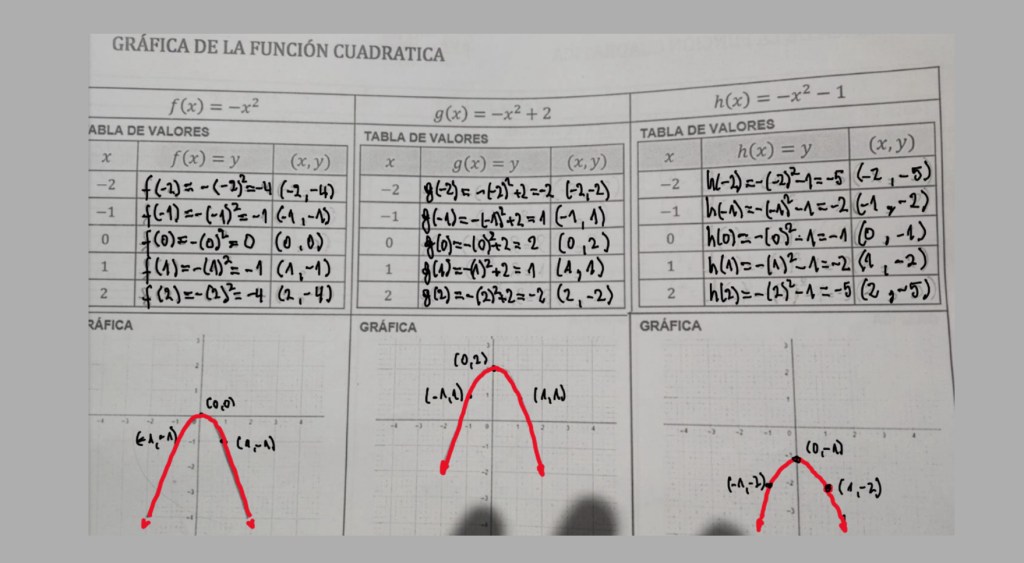 GRÁFICA DE LA FUNCIÓN CUADRATICA
f(x) = −x²
g(x) = −x² + 2
h(x) = −x² − 1
ABLA DE VALORES
x f(x) = y (x, y)
−2 f(-2) = -(-2)² = -4 (-2, -4)
−1 f(-1) = -(-1)² = -1 (-1, -1)
0 f(0) = -(0)² = 0 (0, 0)
1 f(1) = -(1)² = -1 (1, -1)
2 f(2) = -(2)² = -4 (2, -4)
TABLA DE VALORES
x g(x) = y (x, y)
−2 g(-2) = -(-2)²+2 = -2 (-2, -2)
−1 g(-1) = -(-1)²+2 = 1 (-1, 1)
0 g(0) = -(0)²+2 = 2 (0, 2)
1 g(1) = -(1)²+2 = 1 (1, 1)
2 g(2) = -(2)²+2 = -2 (2, -2)
TABLA DE VALORES
x h(x) = y (x, y)
−2 h(-2) = -(-2)²-1 = -5 (-2, -5)
−1 h(-1) = -(-1)²-1 = -2 (-1, -2)
0 h(0) = -(0)²-1 = -1 (0, -1)
1 h(1) = -(1)²-1 = -2 (1, -2)
2 h(2) = -(2)²-1 = -5 (2, -5)
RÁFICA
(0,0)
(-1,-1) (1,-1)
GRÁFICA
(0,2)
(-1,1) (1,1)
GRÁFICA
(0,-1)
(-1,-2) (1,-2)